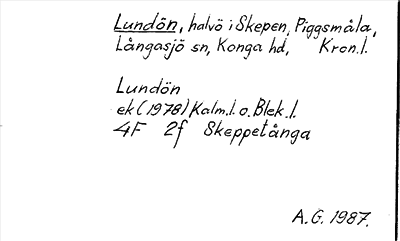 Lundön, halvö i Skepen, Piggsmåla,
Långasjö sn, Konga hd, Kron.l.
Lundön
ek (1978) Kalm.l. o. Blek.l.
4F 2f Skeppetånga
A.G. 1987.